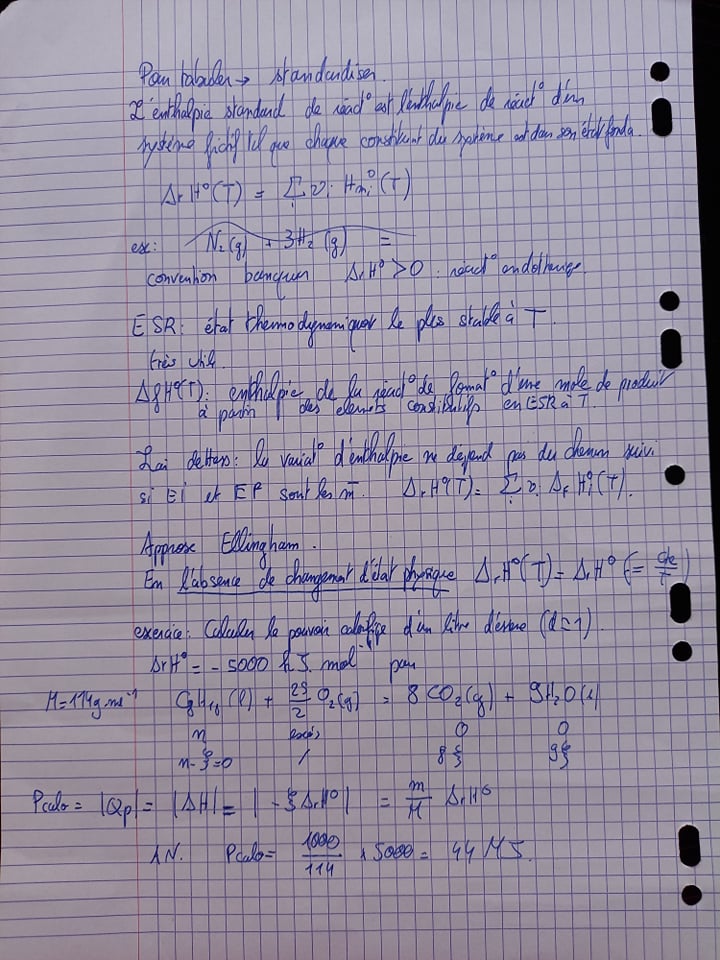 Pour tabuler → standardiser.
L'enthalpie standard de réact° est l'enthalpie de réact° d'un
système fictif tel que chaque constituant du système est dans son état fonda.
ΔrH°(T) = Σi νi Hm,i°(T)
ex: N2(g) + 3H2(g) =
convention banquier ΔrH° > 0 : réact° endothermique.
ESR: état thermodynamique le plus stable à T.
très utile.
ΔfH°(T): enthalpie de la réact° de format° d'une mole de produit
à partir des elements constitutifs en ESR à T.
Loi de Hess: la variat° d'enthalpie ne dépend pas du chemin suivi
si EI et EF sont les m̄. ΔrH°(T) = Σi νi ΔfHi°(T).
Approx Ellingham.
En l'absence de changement d'état physique ΔrH°(T) = ΔrH° (= cte/T)
exercice: Calculer le pouvoir calorifique d'un litre d'essence (d=1).
ΔrH° = -5000 kJ.mol⁻¹ pour
M=114g.mol⁻¹ C8H18(l) + 25/2 O2(g) = 8CO2(g) + 9H2O(l)
n excès 0 0
n-ξ=0 / 8ξ 9ξ
Pcalo = |Qp| = |ΔH| = |-ξΔrH°| = m/M ΔrH°
AN. Pcalo = 1000/114 x 5000 = 44 MJ.